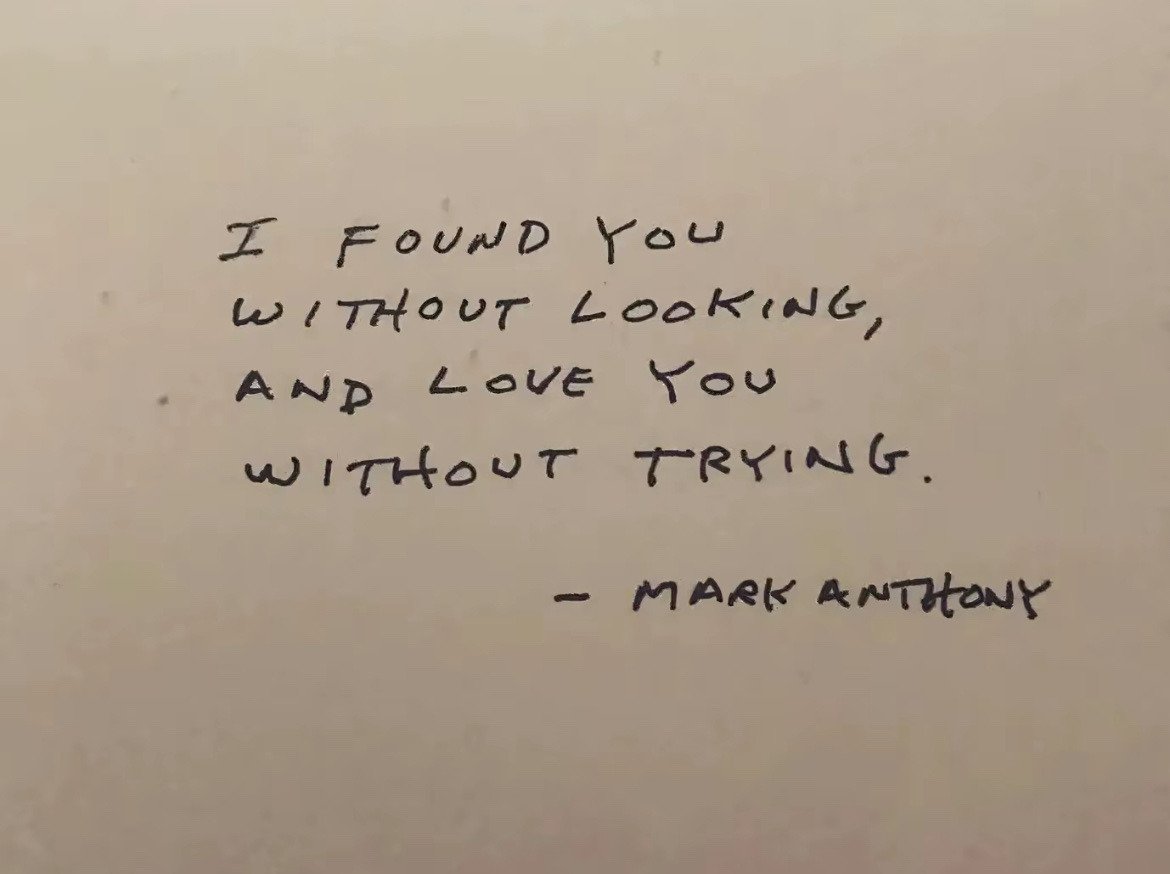 I FOUND YOU
WITHOUT LOOKING,
AND LOVE YOU
WITHOUT TRYING.
- MARK ANTHONY